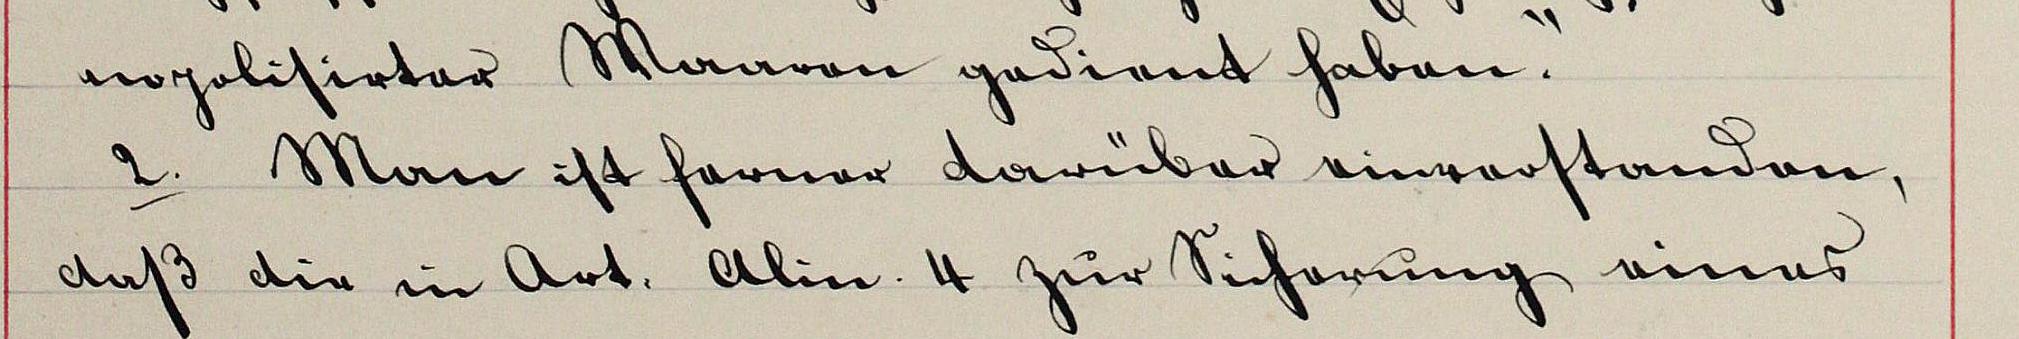 nopolisirter Waaren gedient haben."
2. Man ist ferner darüber einverstanden,
daß die in Art. Alin. 4 zur Sicherung eines